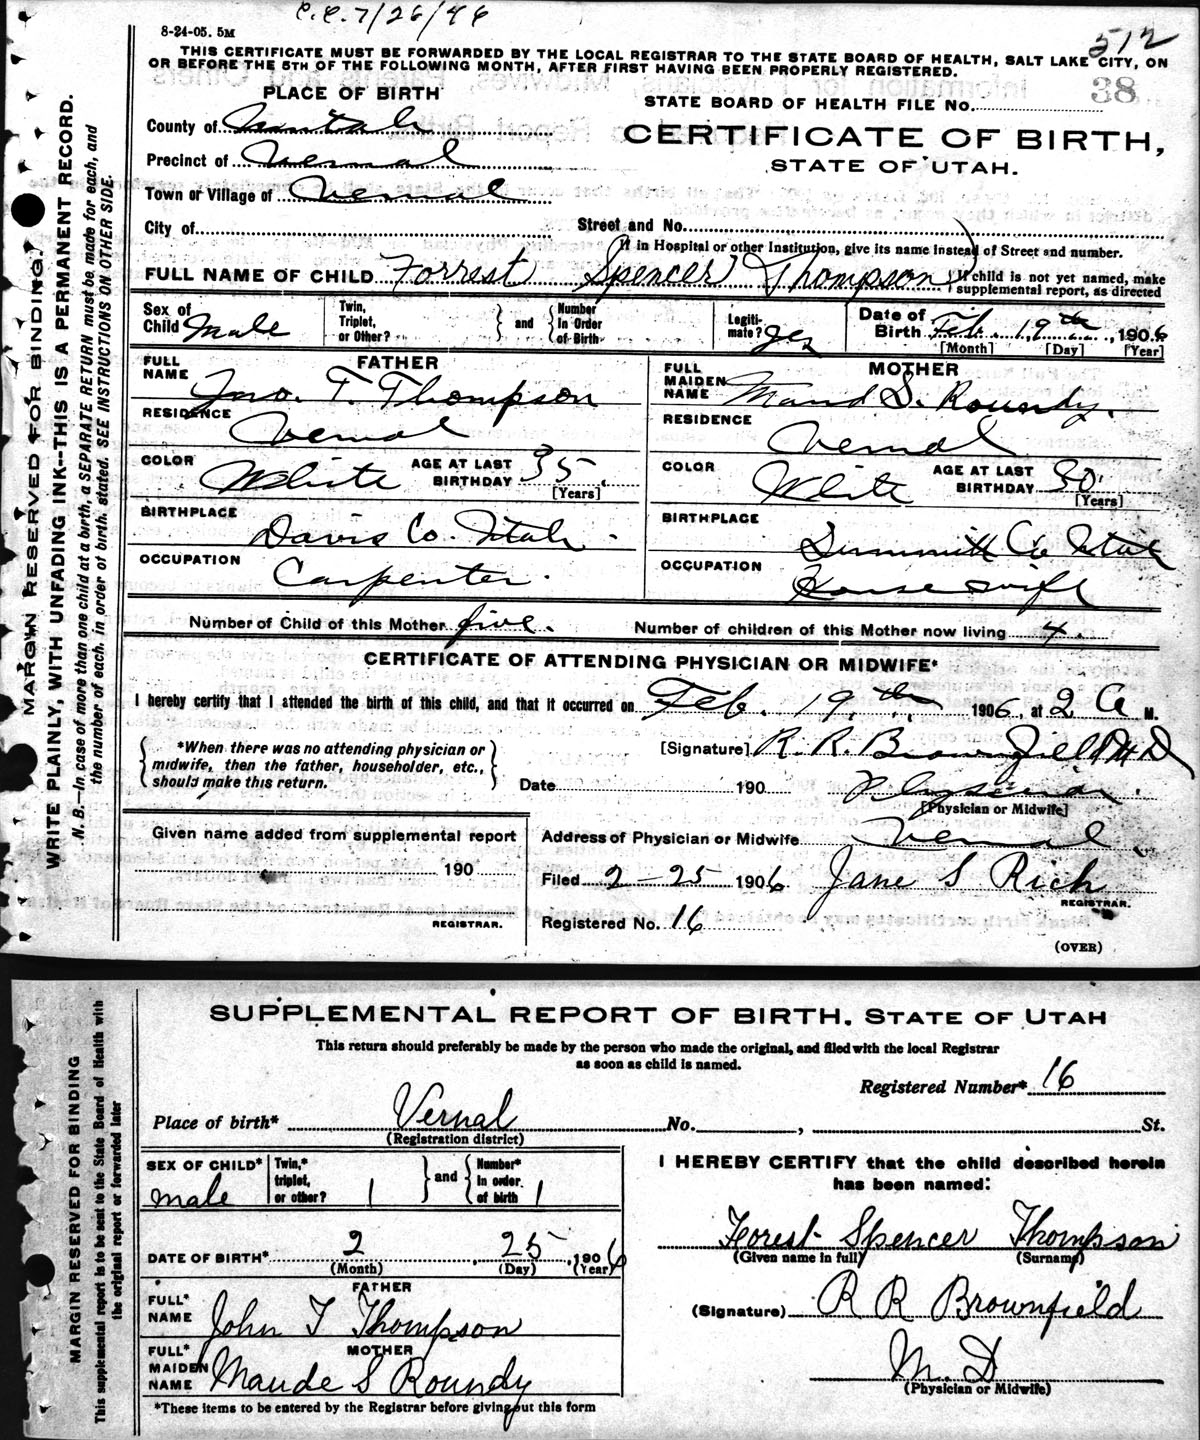 C.C. 7/26/46
8-24-05. 5M
512
THIS CERTIFICATE MUST BE FORWARDED BY THE LOCAL REGISTRAR TO THE STATE BOARD OF HEALTH, SALT LAKE CITY, ON
OR BEFORE THE 5TH OF THE FOLLOWING MONTH, AFTER FIRST HAVING BEEN PROPERLY REGISTERED.
38
PLACE OF BIRTH
STATE BOARD OF HEALTH FILE No.
County of Uintah
CERTIFICATE OF BIRTH,
Precinct of Vernal
STATE OF UTAH.
Town or Village of Vernal
City of
Street and No.
If in Hospital or other Institution, give its name instead of Street and number.
FULL NAME OF CHILD Forrest Spencer Thompson
If child is not yet named, make supplemental report, as directed
Sex of Child Male
Twin, Triplet, or Other?
and
Number In Order of Birth
Legitimate? yes
Date of Birth Feb. 19th, 1906
[Month] [Day] [Year]
FATHER
FULL NAME Jno. T. Thompson
RESIDENCE Vernal
COLOR White AGE AT LAST BIRTHDAY 35 [Years]
BIRTHPLACE Davis Co. Utah
OCCUPATION Carpenter.
MOTHER
FULL MAIDEN NAME Maud S. Roundy.
RESIDENCE Vernal
COLOR White AGE AT LAST BIRTHDAY 30 [Years]
BIRTHPLACE Summitt Co Utah
OCCUPATION Housewife
Number of Child of this Mother five. Number of children of this Mother now living 4.
CERTIFICATE OF ATTENDING PHYSICIAN OR MIDWIFE*
I hereby certify that I attended the birth of this child, and that it occurred on Feb. 19.th 1906, at 2 A M.
*When there was no attending physician or
midwife, then the father, householder, etc.,
should make this return.
[Signature] R. R. Brownfield M D
Date 190 Physician.
[Physician or Midwife]
Given name added from supplemental report
190
REGISTRAR.
Address of Physician or Midwife Vernal
Filed 2-25 1906 Jane S Rich
REGISTRAR.
Registered No. 16
(OVER)
MARGIN RESERVED FOR BINDING.
WRITE PLAINLY, WITH UNFADING INK--THIS IS A PERMANENT RECORD.
N. B.—In case of more than one child at a birth, a SEPARATE RETURN must be made for each, and
the number of each, in order of birth, stated. SEE INSTRUCTIONS ON OTHER SIDE.
SUPPLEMENTAL REPORT OF BIRTH. STATE OF UTAH
This return should preferably be made by the person who made the original, and filed with the local Registrar
as soon as child is named.
Registered Number* 16
Place of birth* Vernal No. , St.
(Registration district)
SEX OF CHILD* male
Twin,* triplet, or other? 1
and
Number* in order of birth 1
DATE OF BIRTH* 2 , 25 , 1906
(Month) (Day) (Year)
FATHER
FULL* NAME John T Thompson
MOTHER
FULL* MAIDEN NAME Maude S Roundy
*These items to be entered by the Registrar before giving out this form
I HEREBY CERTIFY that the child described herein
has been named:
Forest Spencer Thompson
(Given name in full) (Surname)
(Signature) R R Brownfield
M. D
(Physician or Midwife)
MARGIN RESERVED FOR BINDING
This supplemental report is to be sent to the State Board of Health with
the original report or forwarded later